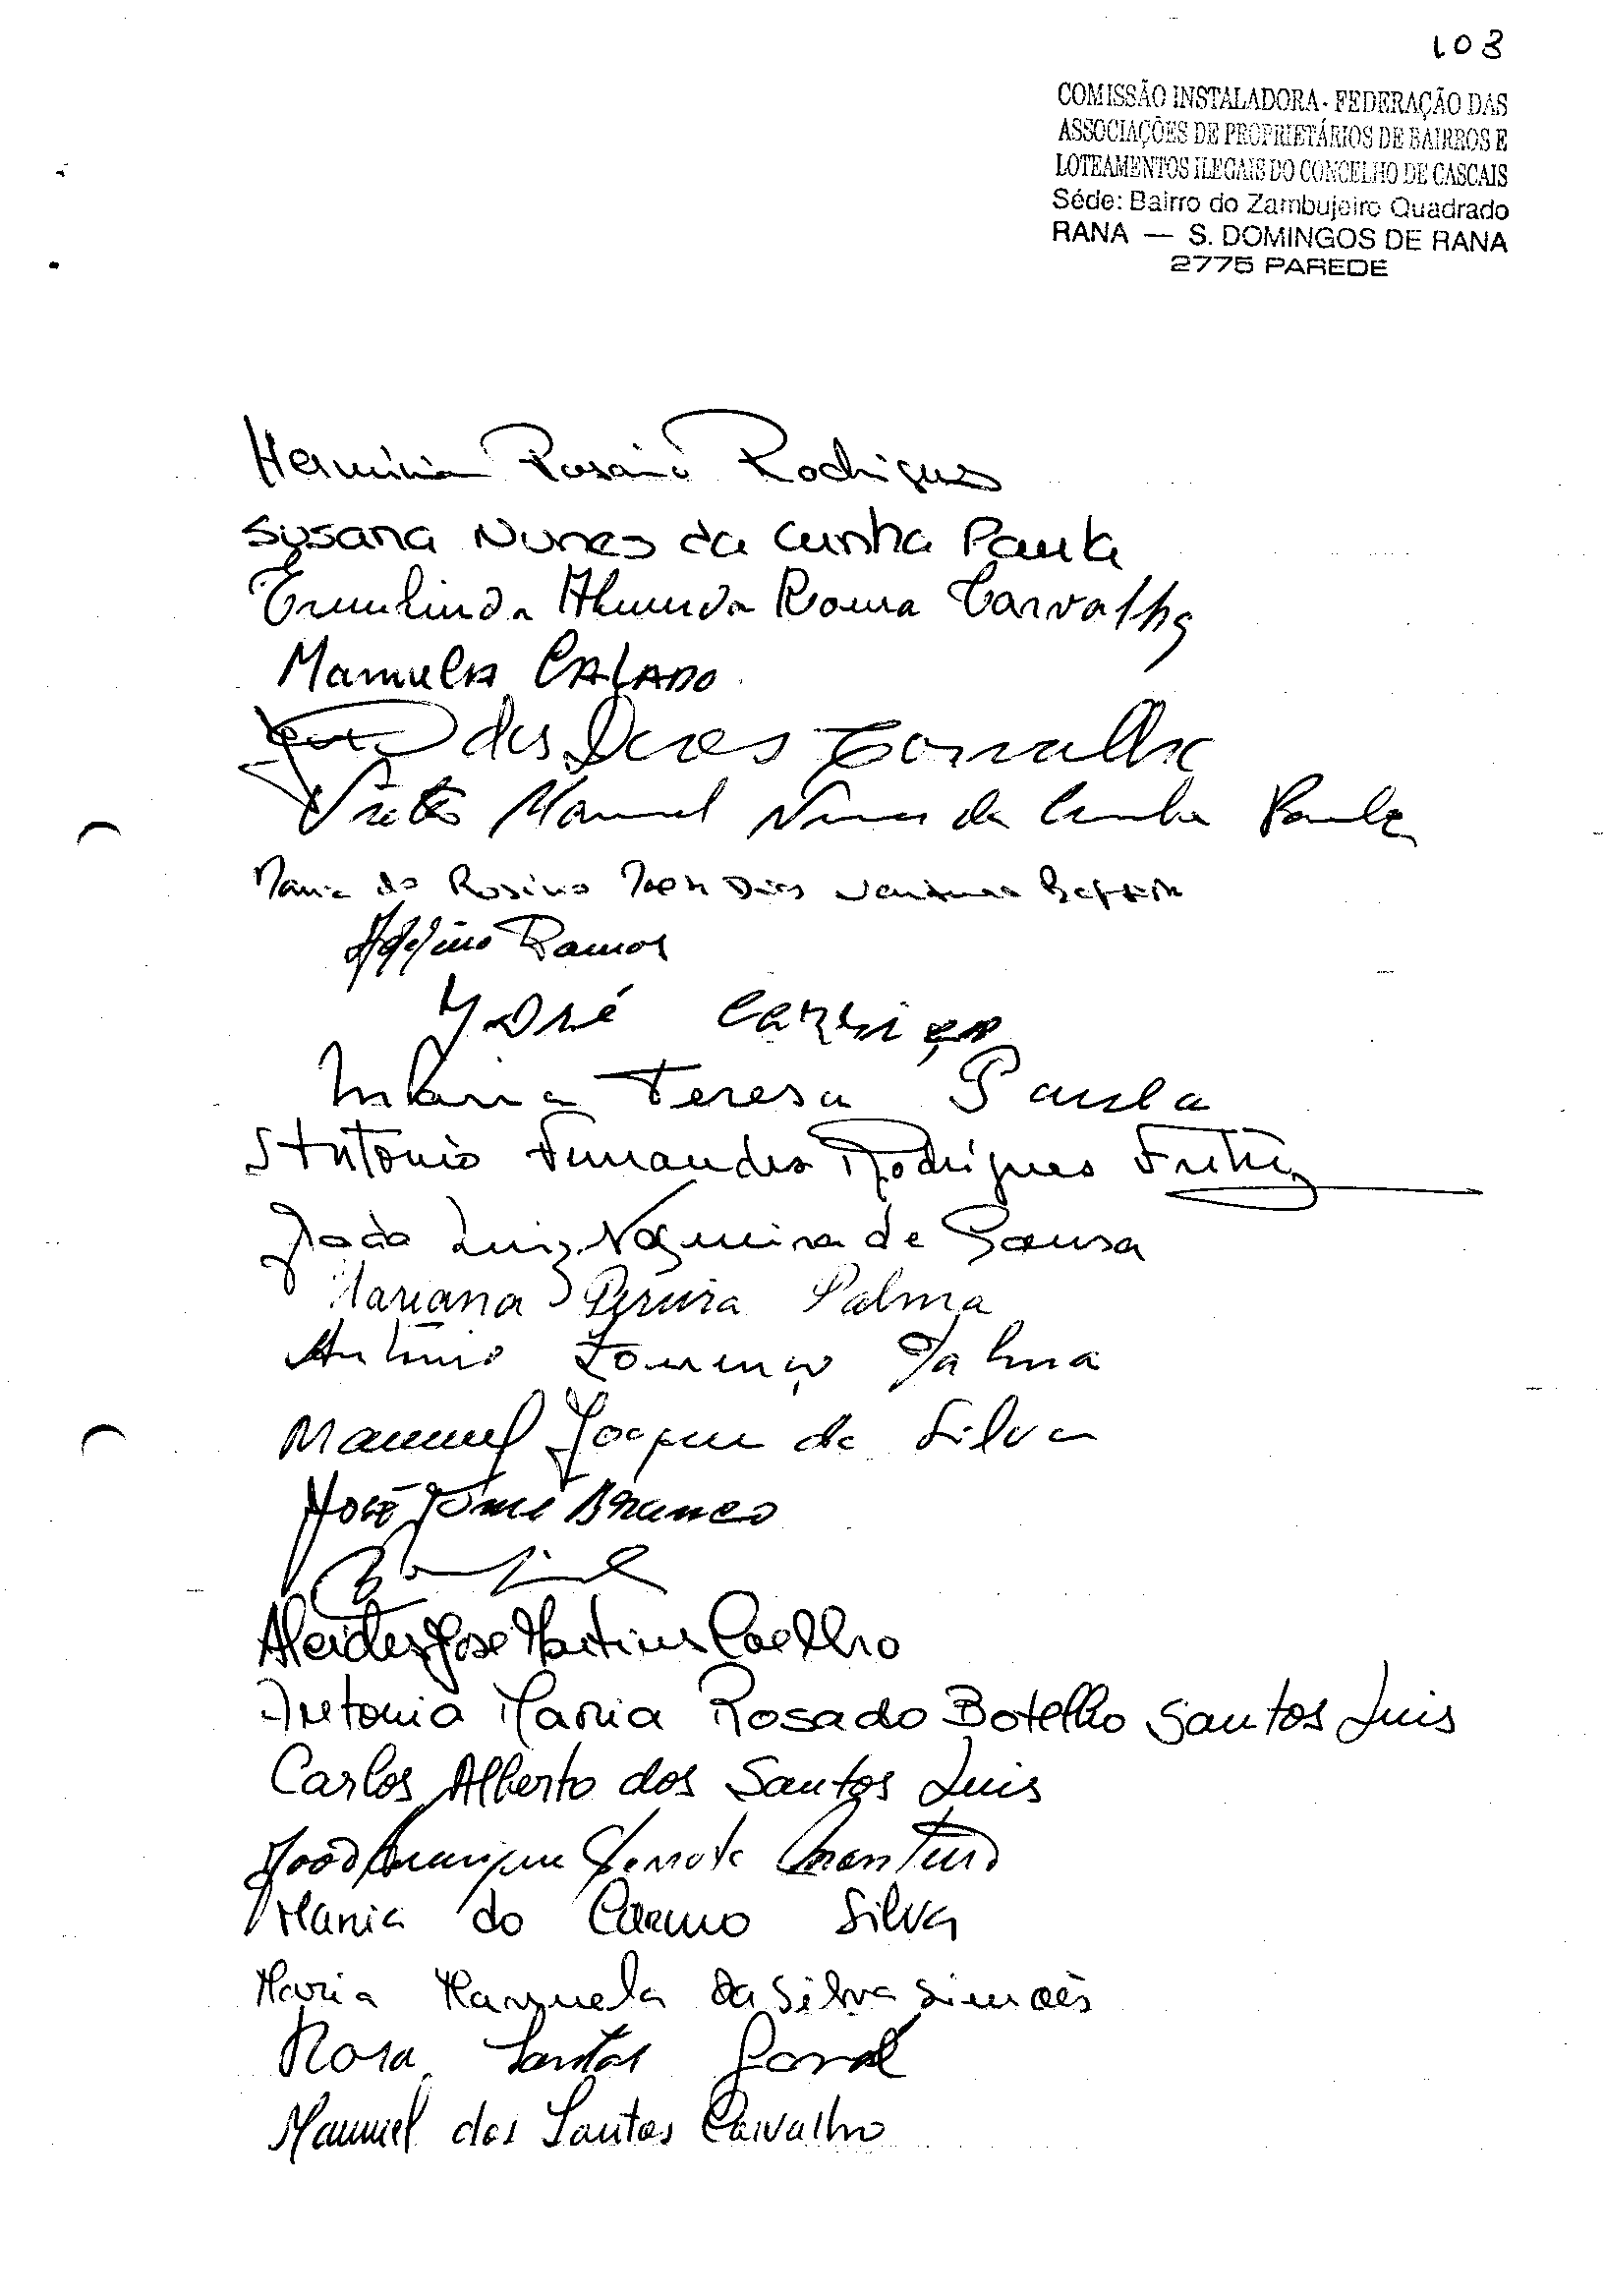 103
COMISSÃO INSTALADORA - FEDERAÇÃO DAS
ASSOCIAÇÕES DE PROPRIETÁRIOS DE BAIRROS E
LOTEAMENTOS ILEGAIS DO CONCELHO DE CASCAIS
Séde: Bairro do Zambujeiro Quadrado
RANA — S. DOMINGOS DE RANA
2775 PAREDE
Herminia Rosario Rodrigues
Susana Nunes da Cunha Paula
Almeida Carvalho
Manuela CALADO
das Dores Carvalho
Manuel Nunes da Cunha Paula
Maria do Dias
Ramos
José
Maria Teresa Paula
António Fernandes Rodrigues
João Luiz Nogueira de Sousa
Mariana Pereira Palma
António Lourenço Palma
Manuel Joaquim da Silva
José Tomé Branco
Alcides José Martins Coelho
Antonia Maria Rosado Botelho Santos Luis
Carlos Alberto dos Santos Luis
João Henrique
Maria do Carmo Silva
Maria Manuela da Silva Simoēs
Rosa Santos
Manuel dos Santos Carvalho